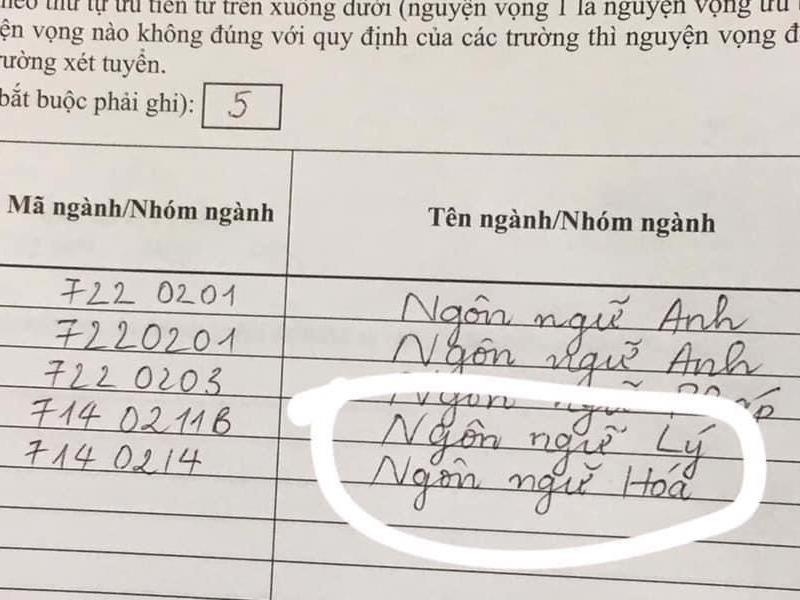 theo thứ tự ưu tiên từ trên xuống dưới (nguyện vọng 1 là nguyện vọng ưu
ện vọng nào không đúng với quy định của các trường thì nguyện vọng đ
rường xét tuyển.
bắt buộc phải ghi): 5
Mã ngành/Nhóm ngành Tên ngành/Nhóm ngành
722 0201 Ngôn ngữ Anh
7220201 Ngôn ngữ Anh
722 0203 Ngôn ngữ Pháp
714 0211B Ngôn ngữ Lý
714 0214 Ngôn ngữ Hóa